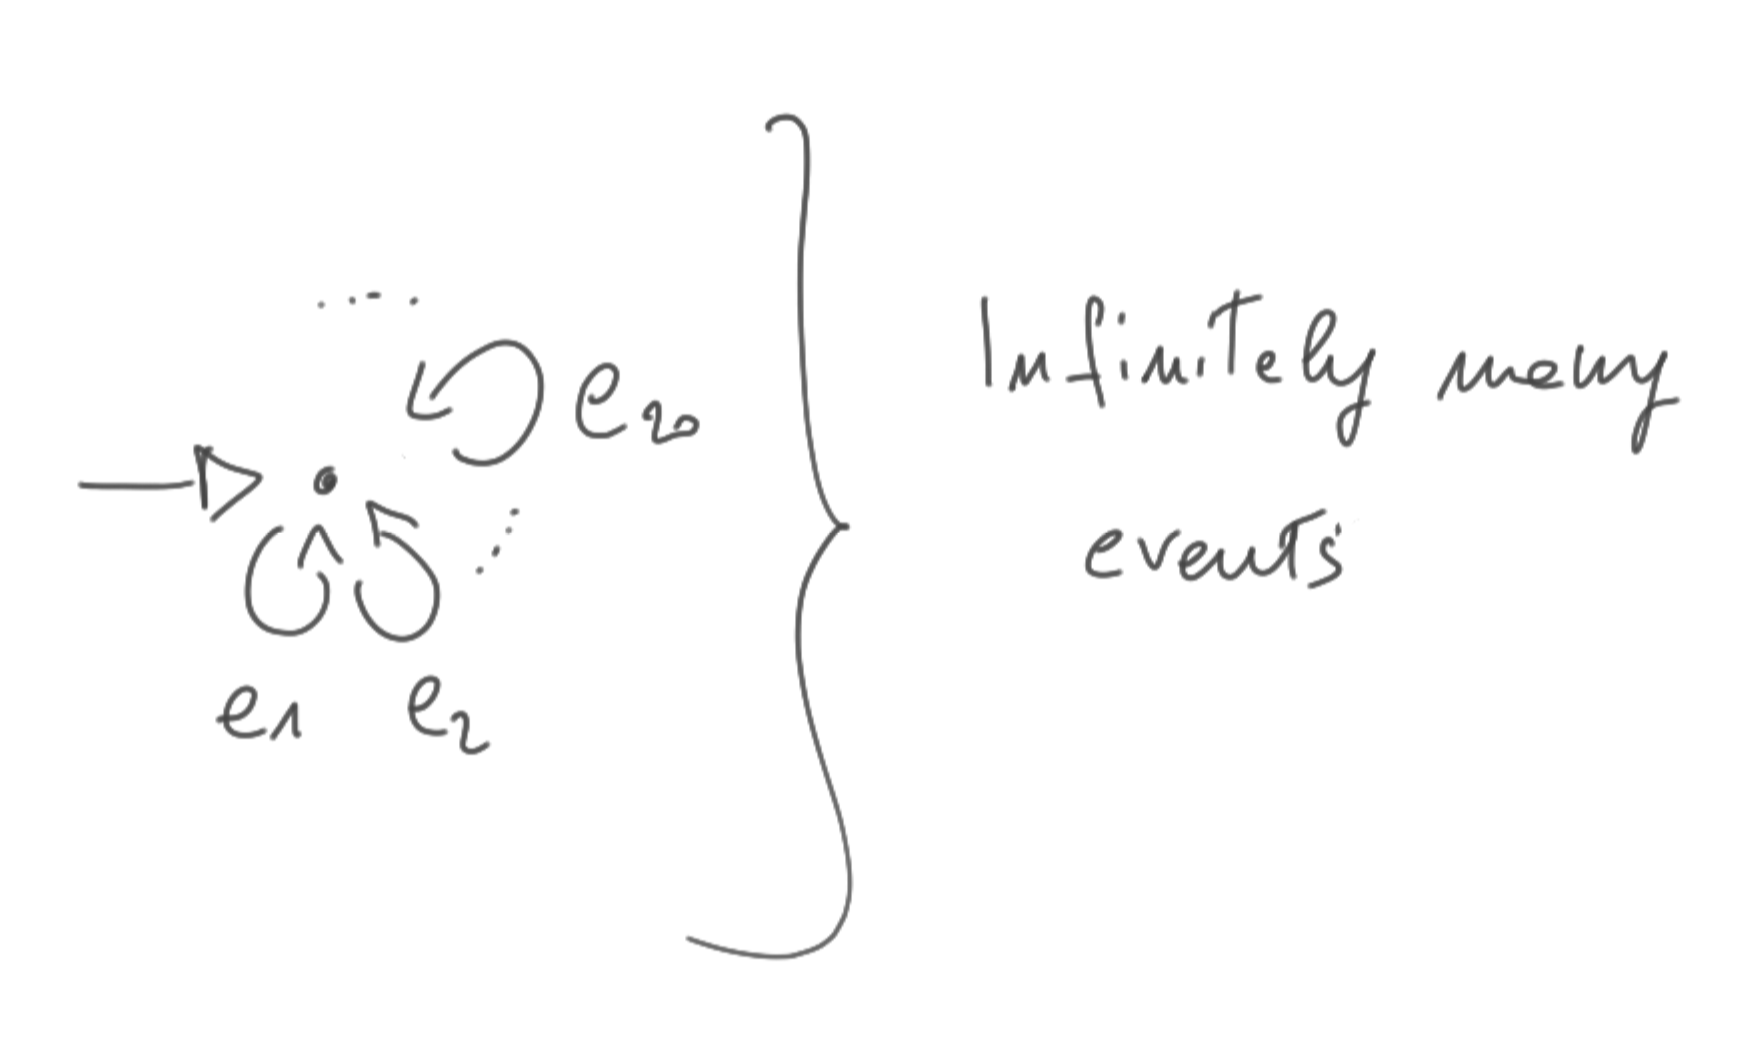 e₂₀
e₁ e₂
Infinitely many
events